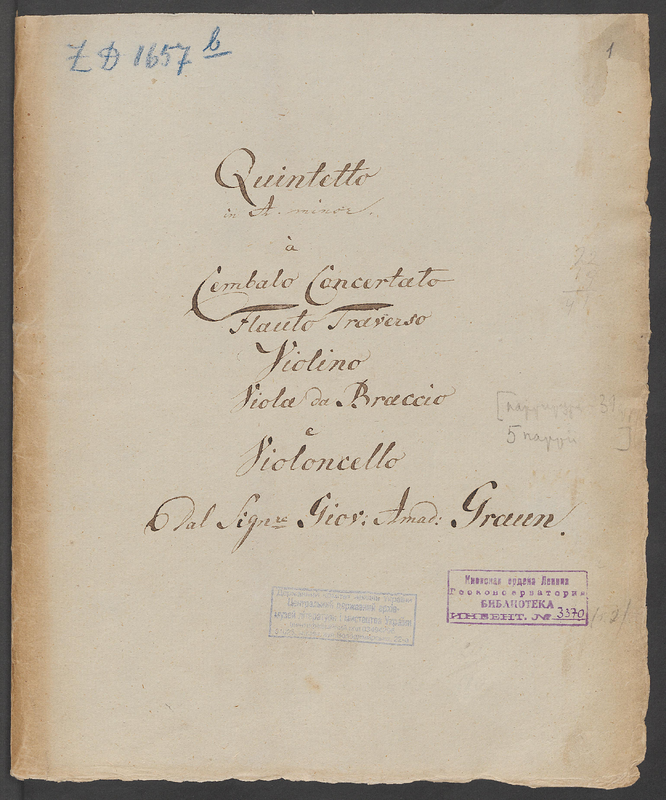 Z D 1657 b
1
Quintetto
in A. minor.
à
Cembalo Concertato
Flauto Traverso
Violino
Viola da Braccio
e
Violoncello
Dal Signre Giov: Amad: Graun.
5 партій
Київская ордена Ленина
Госконсерватория
БИБЛИОТЕКА
ИНВЕНТ. № 3370
Центральний державний архів-